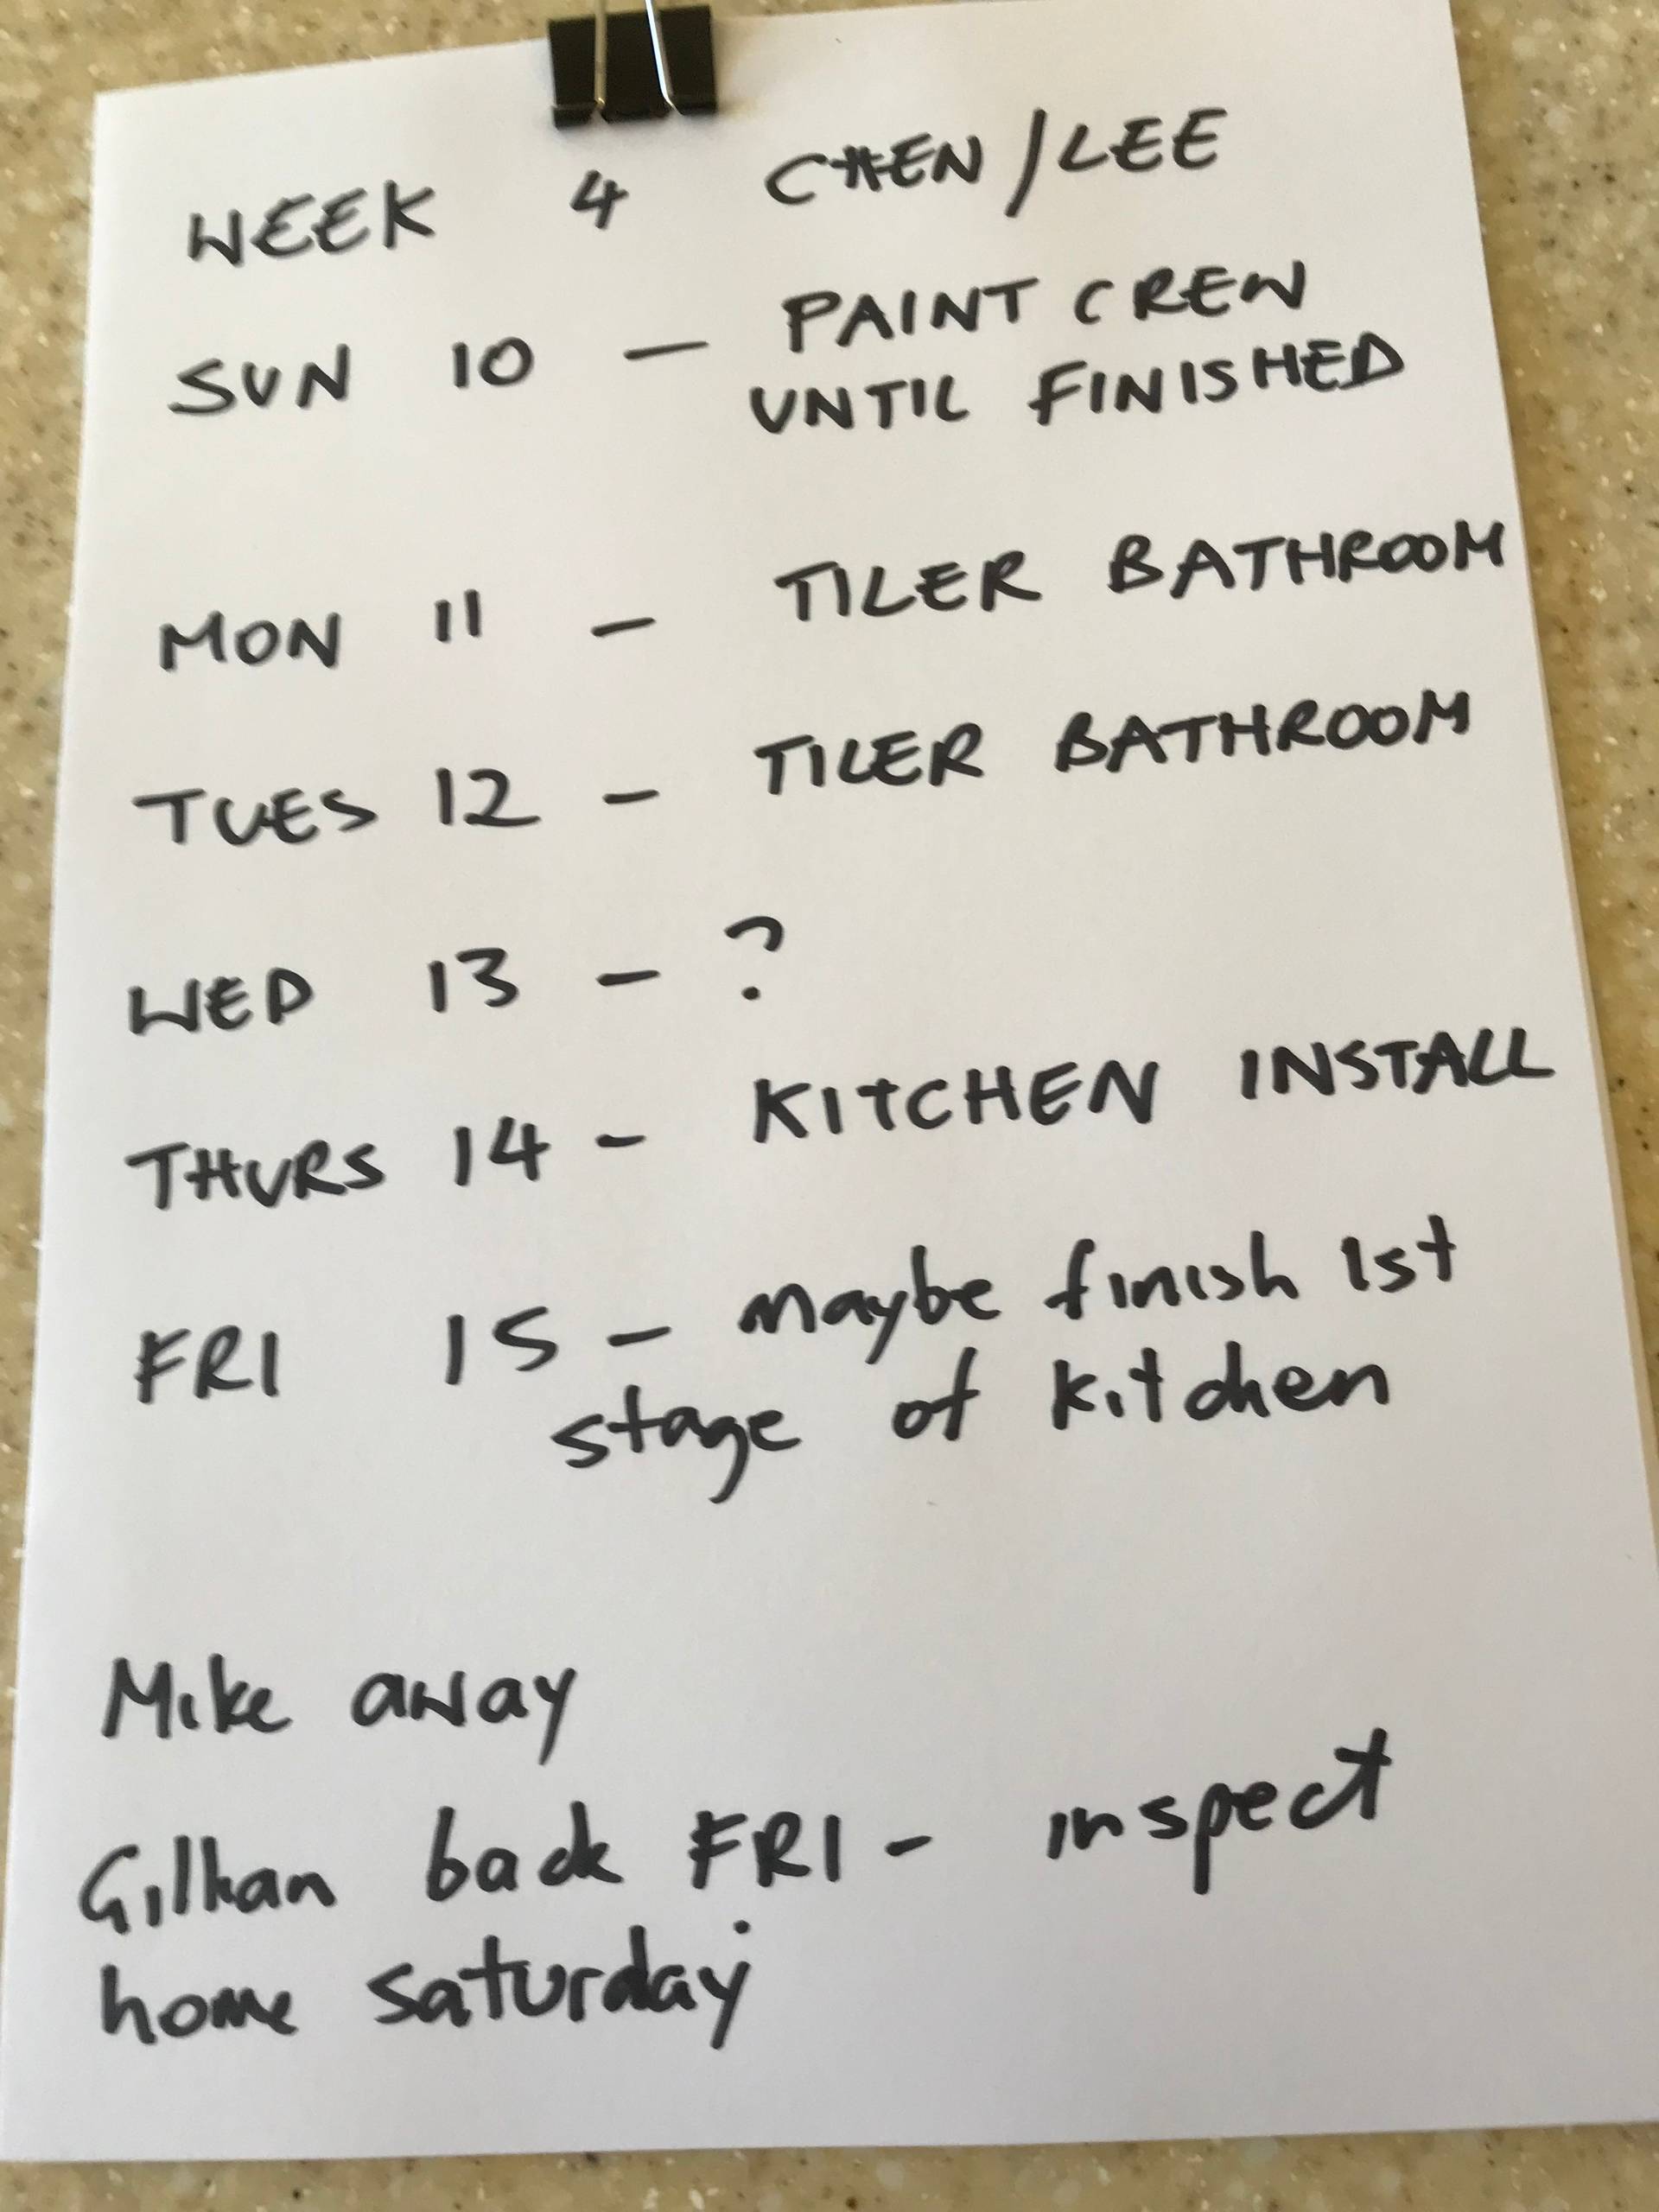 WEEK 4 CHEN/LEE
SUN 10 — PAINT CREW
UNTIL FINISHED
MON 11 — TILER BATHROOM
TUES 12 — TILER BATHROOM
WED 13 — ?
THURS 14 — KITCHEN INSTALL
FRI 15 — Maybe finish 1st
stage of kitchen
Mike away
Gillian back FRI - inspect
home saturday